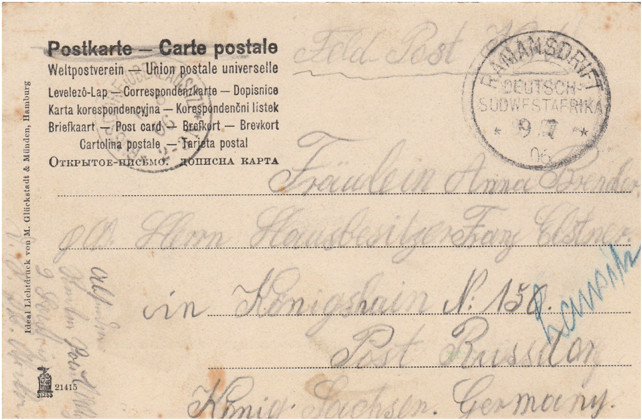 Postkarte — Carte postale
Weltpostverein — Union postale universelle
Levelező-Lap — Correspondenzkarte — Dopisnice
Karta korespondencyjna — Korespondenční lístek
Briefkaart — Post card — Brefkort — Brevkort
Cartolina postale — Tarjeta postal
Открытое письмо. дописна карта
Feld Post
RAMANSDRIFT
DEUTSCH-
SÜDWESTAFRIKA
* 9 7 *
06
Fräulein Anna Bender
Herrn Hausbesitzer Franz Elstner
in Königshain N: 150.
Lausitz
Post Russdorf
König. Sachsen. Germany.
Ideal Lichtdruck von M. Glückstadt & Münden, Hamburg
21415